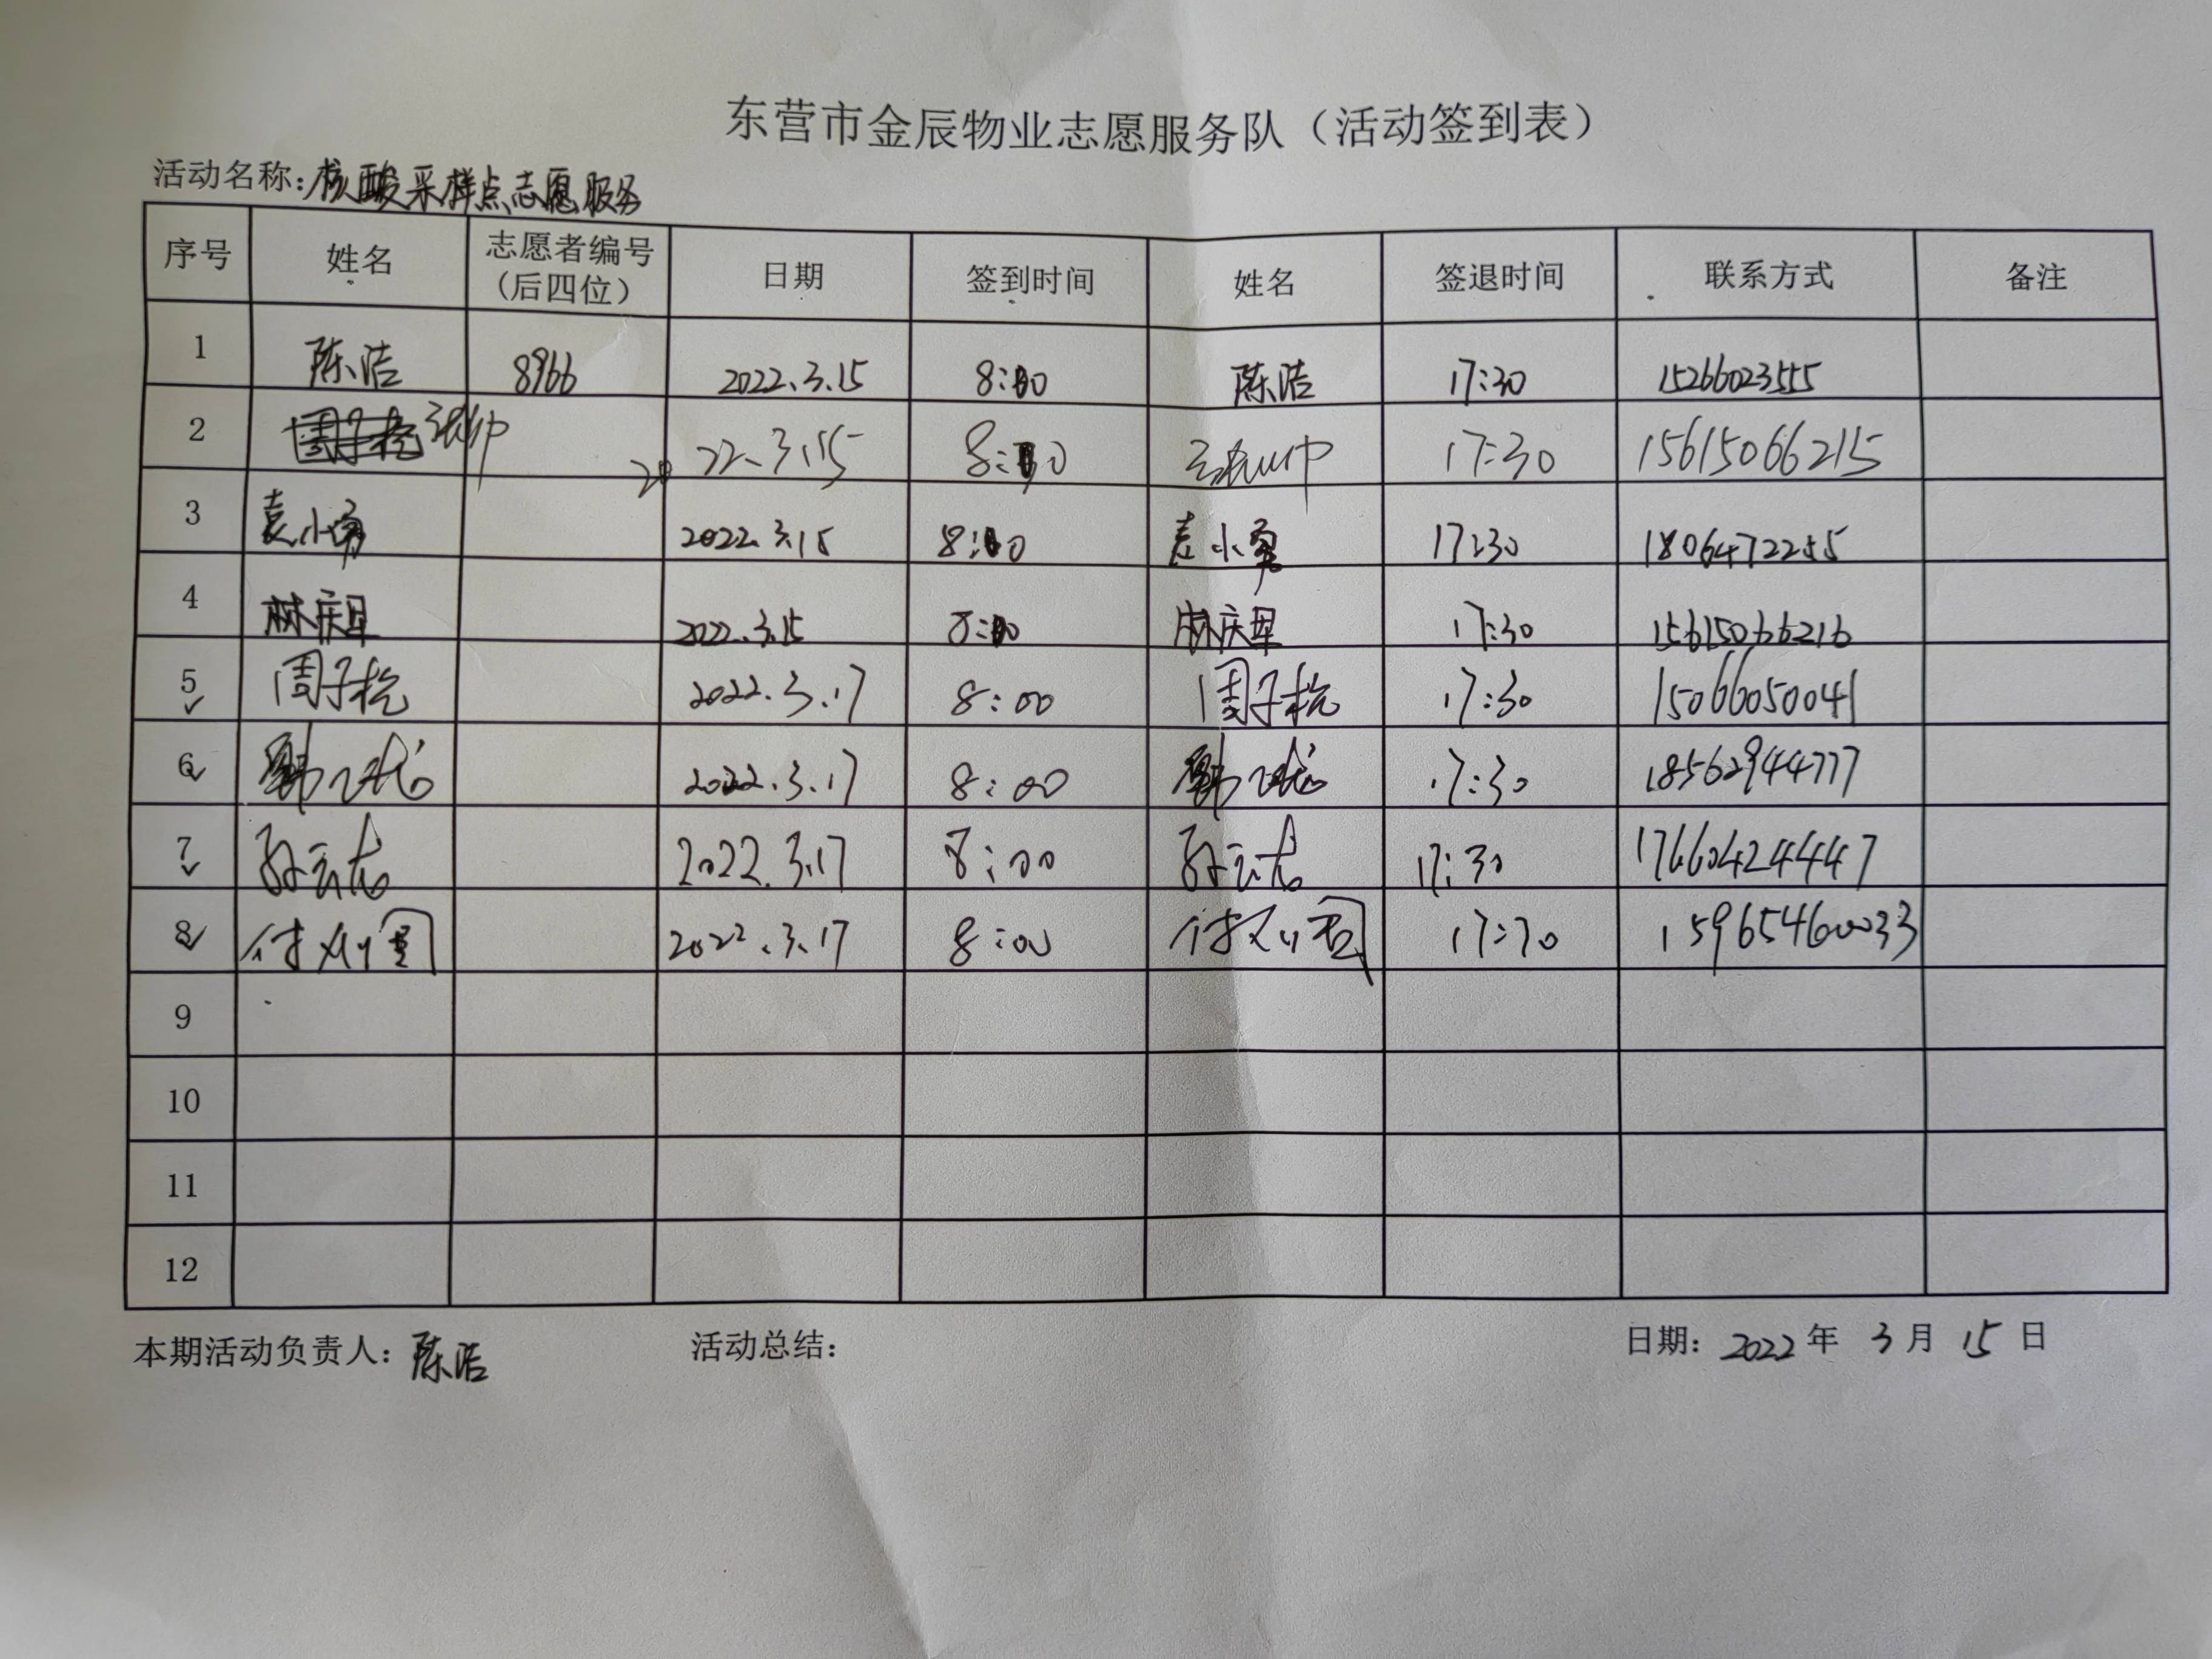 东营市金辰物业志愿服务队（活动签到表）
活动名称：核酸采样点志愿服务
序号 姓名 志愿者编号（后四位） 日期 签到时间 姓名 签退时间 联系方式 备注
1 陈洁 8966 2022.3.15 8:00 陈洁 17:30 15266023555
2 2022.3.15 8:00 17:30 15615066215
3 袁小勇 2022.3.15 8:00 袁小勇 17:30 18064722255
4 林庆军 2022.3.15 8:00 林庆军 17:30 15615066216
5 周子杭 2022.3.17 8:00 周子杭 17:30 15066050041
6 2022.3.17 8:00 17:30 18562944777
7 孙云龙 2022.3.17 8:00 孙云龙 17:30 17660424447
8 2022.3.17 8:00 17:30 15965460033
9
10
11
12
本期活动负责人：陈洁 活动总结： 日期：2022年 3月 15日